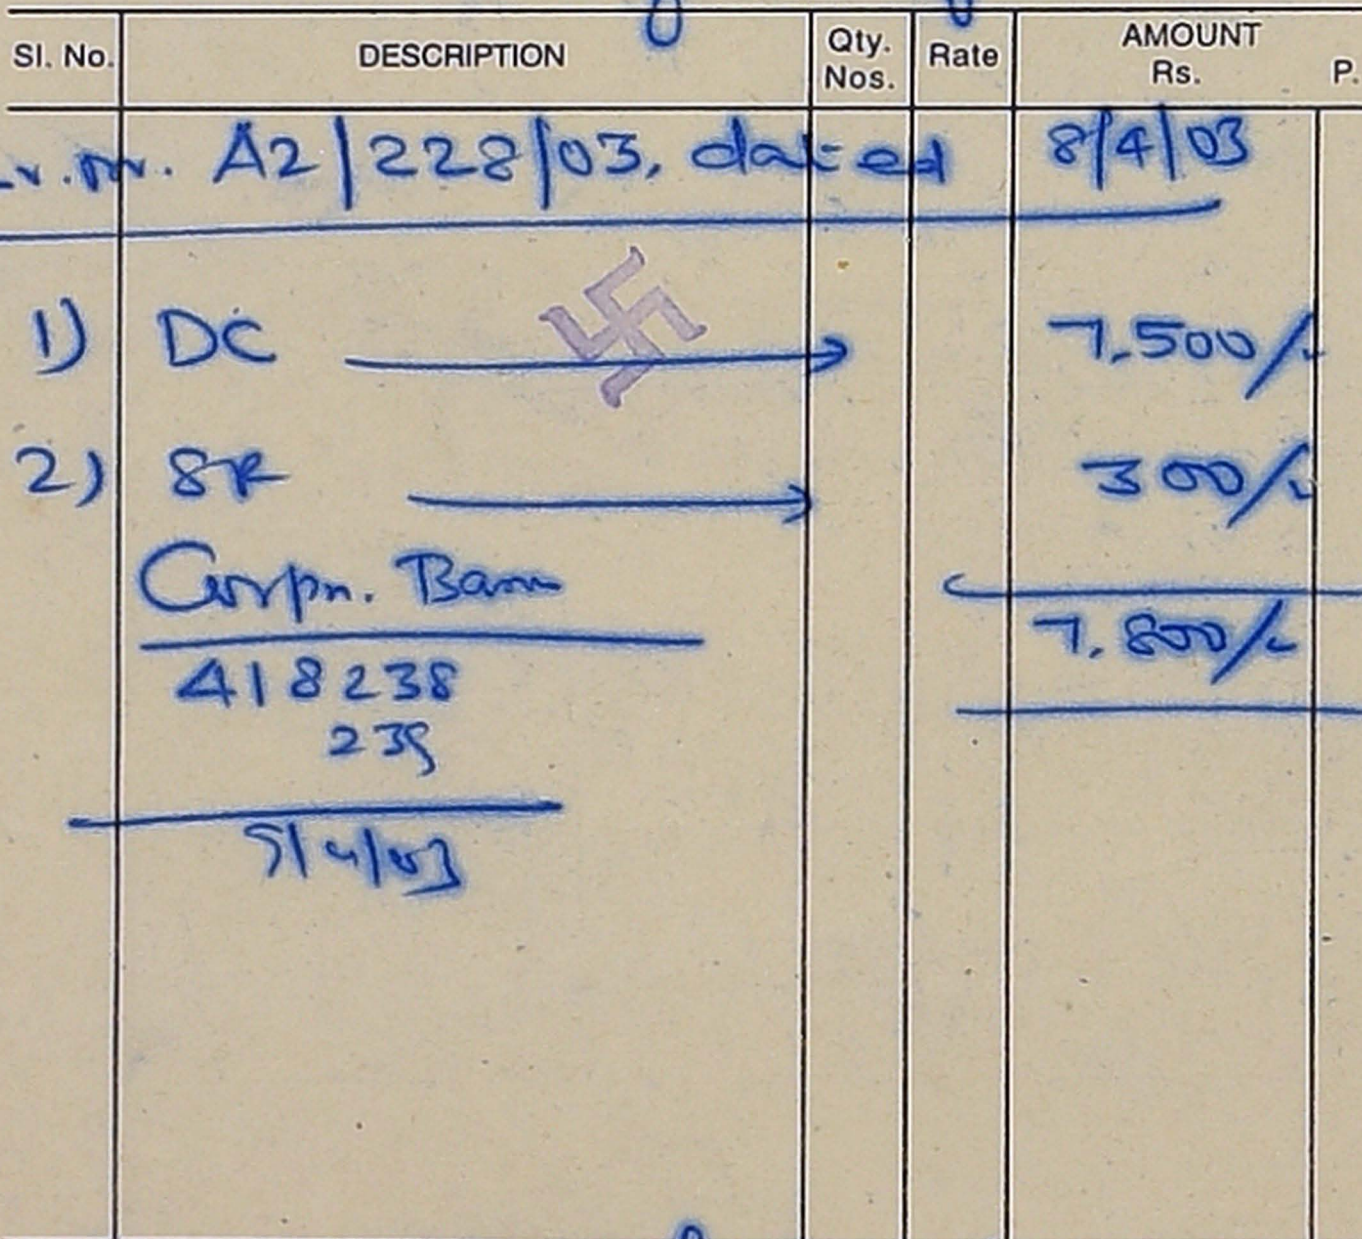 Sl. No. DESCRIPTION Qty. Nos. Rate AMOUNT Rs. P.
Lr. nr. A2/228/03, dated 8/4/03
1) DC 7.500/-
2) SR 300/-
Corpn. Bank
7.800/-
418238
239
9/4/03